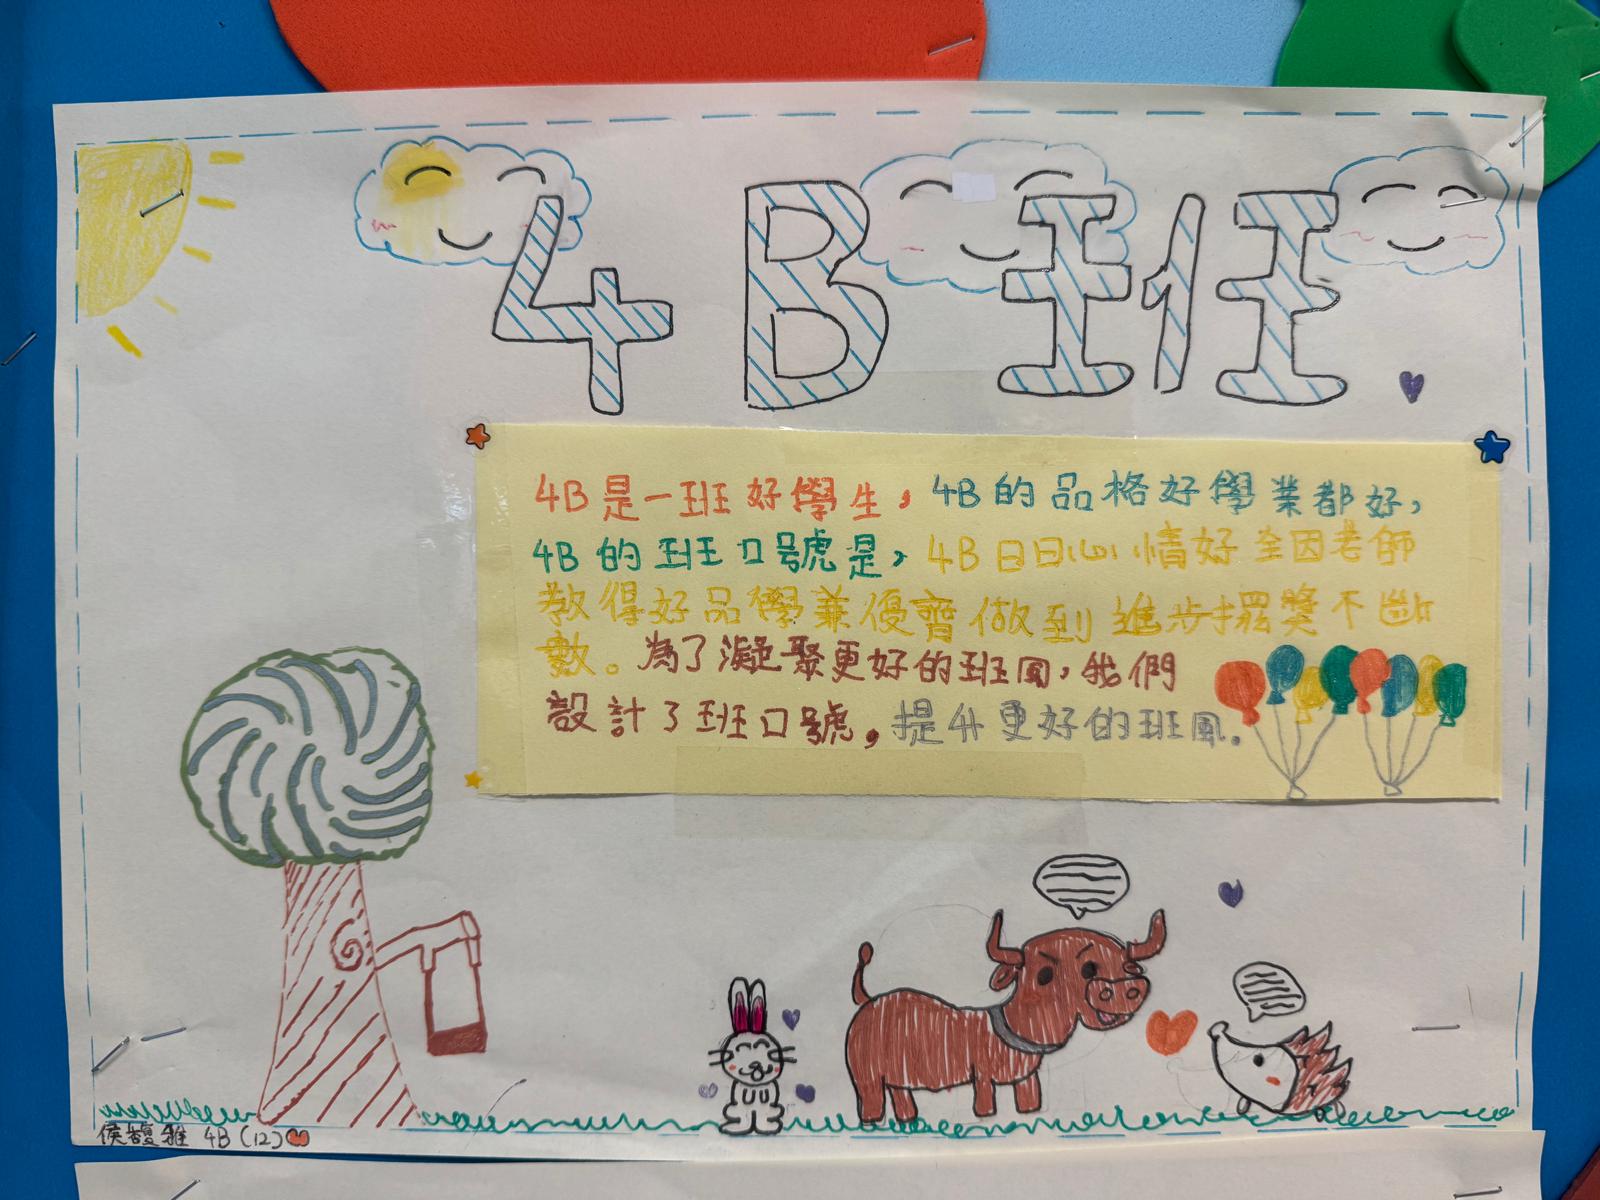 4B班
4B是一班好學生，4B的品格好學業都好，
4B的班口號是，4B日日心情好全因老師
教得好品學兼優齊做到進步擢獎不斷
數。為了凝聚更好的班風，我們
設計了班口號，提升更好的班風。
侯馥雅 4B(12)